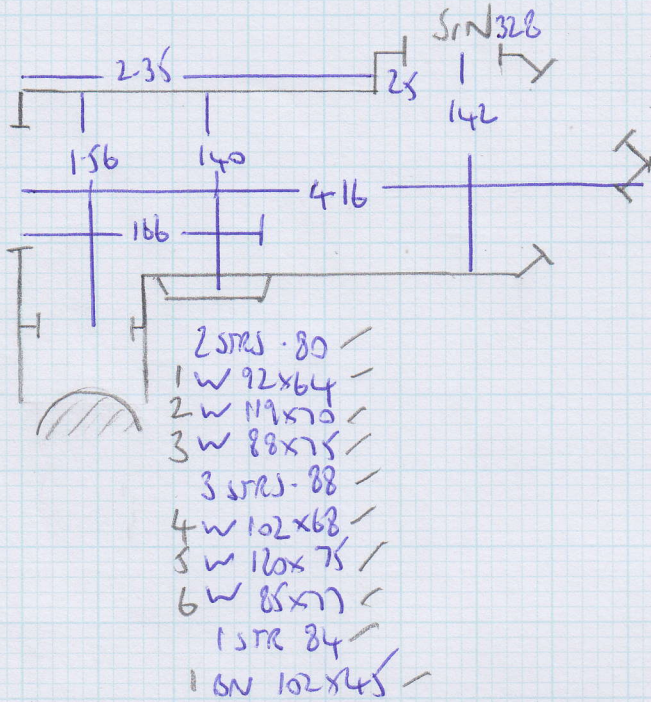 S/N 328
2.35
25
142
1.56
140
4.16
166
2 STRS .80
1 W 92x64
2 W 119x70
3 W 88x75
3 STRS .88
4 W 102x68
5 W 120x75
6 W 85x77
1 STR 84
1 BN 102x45